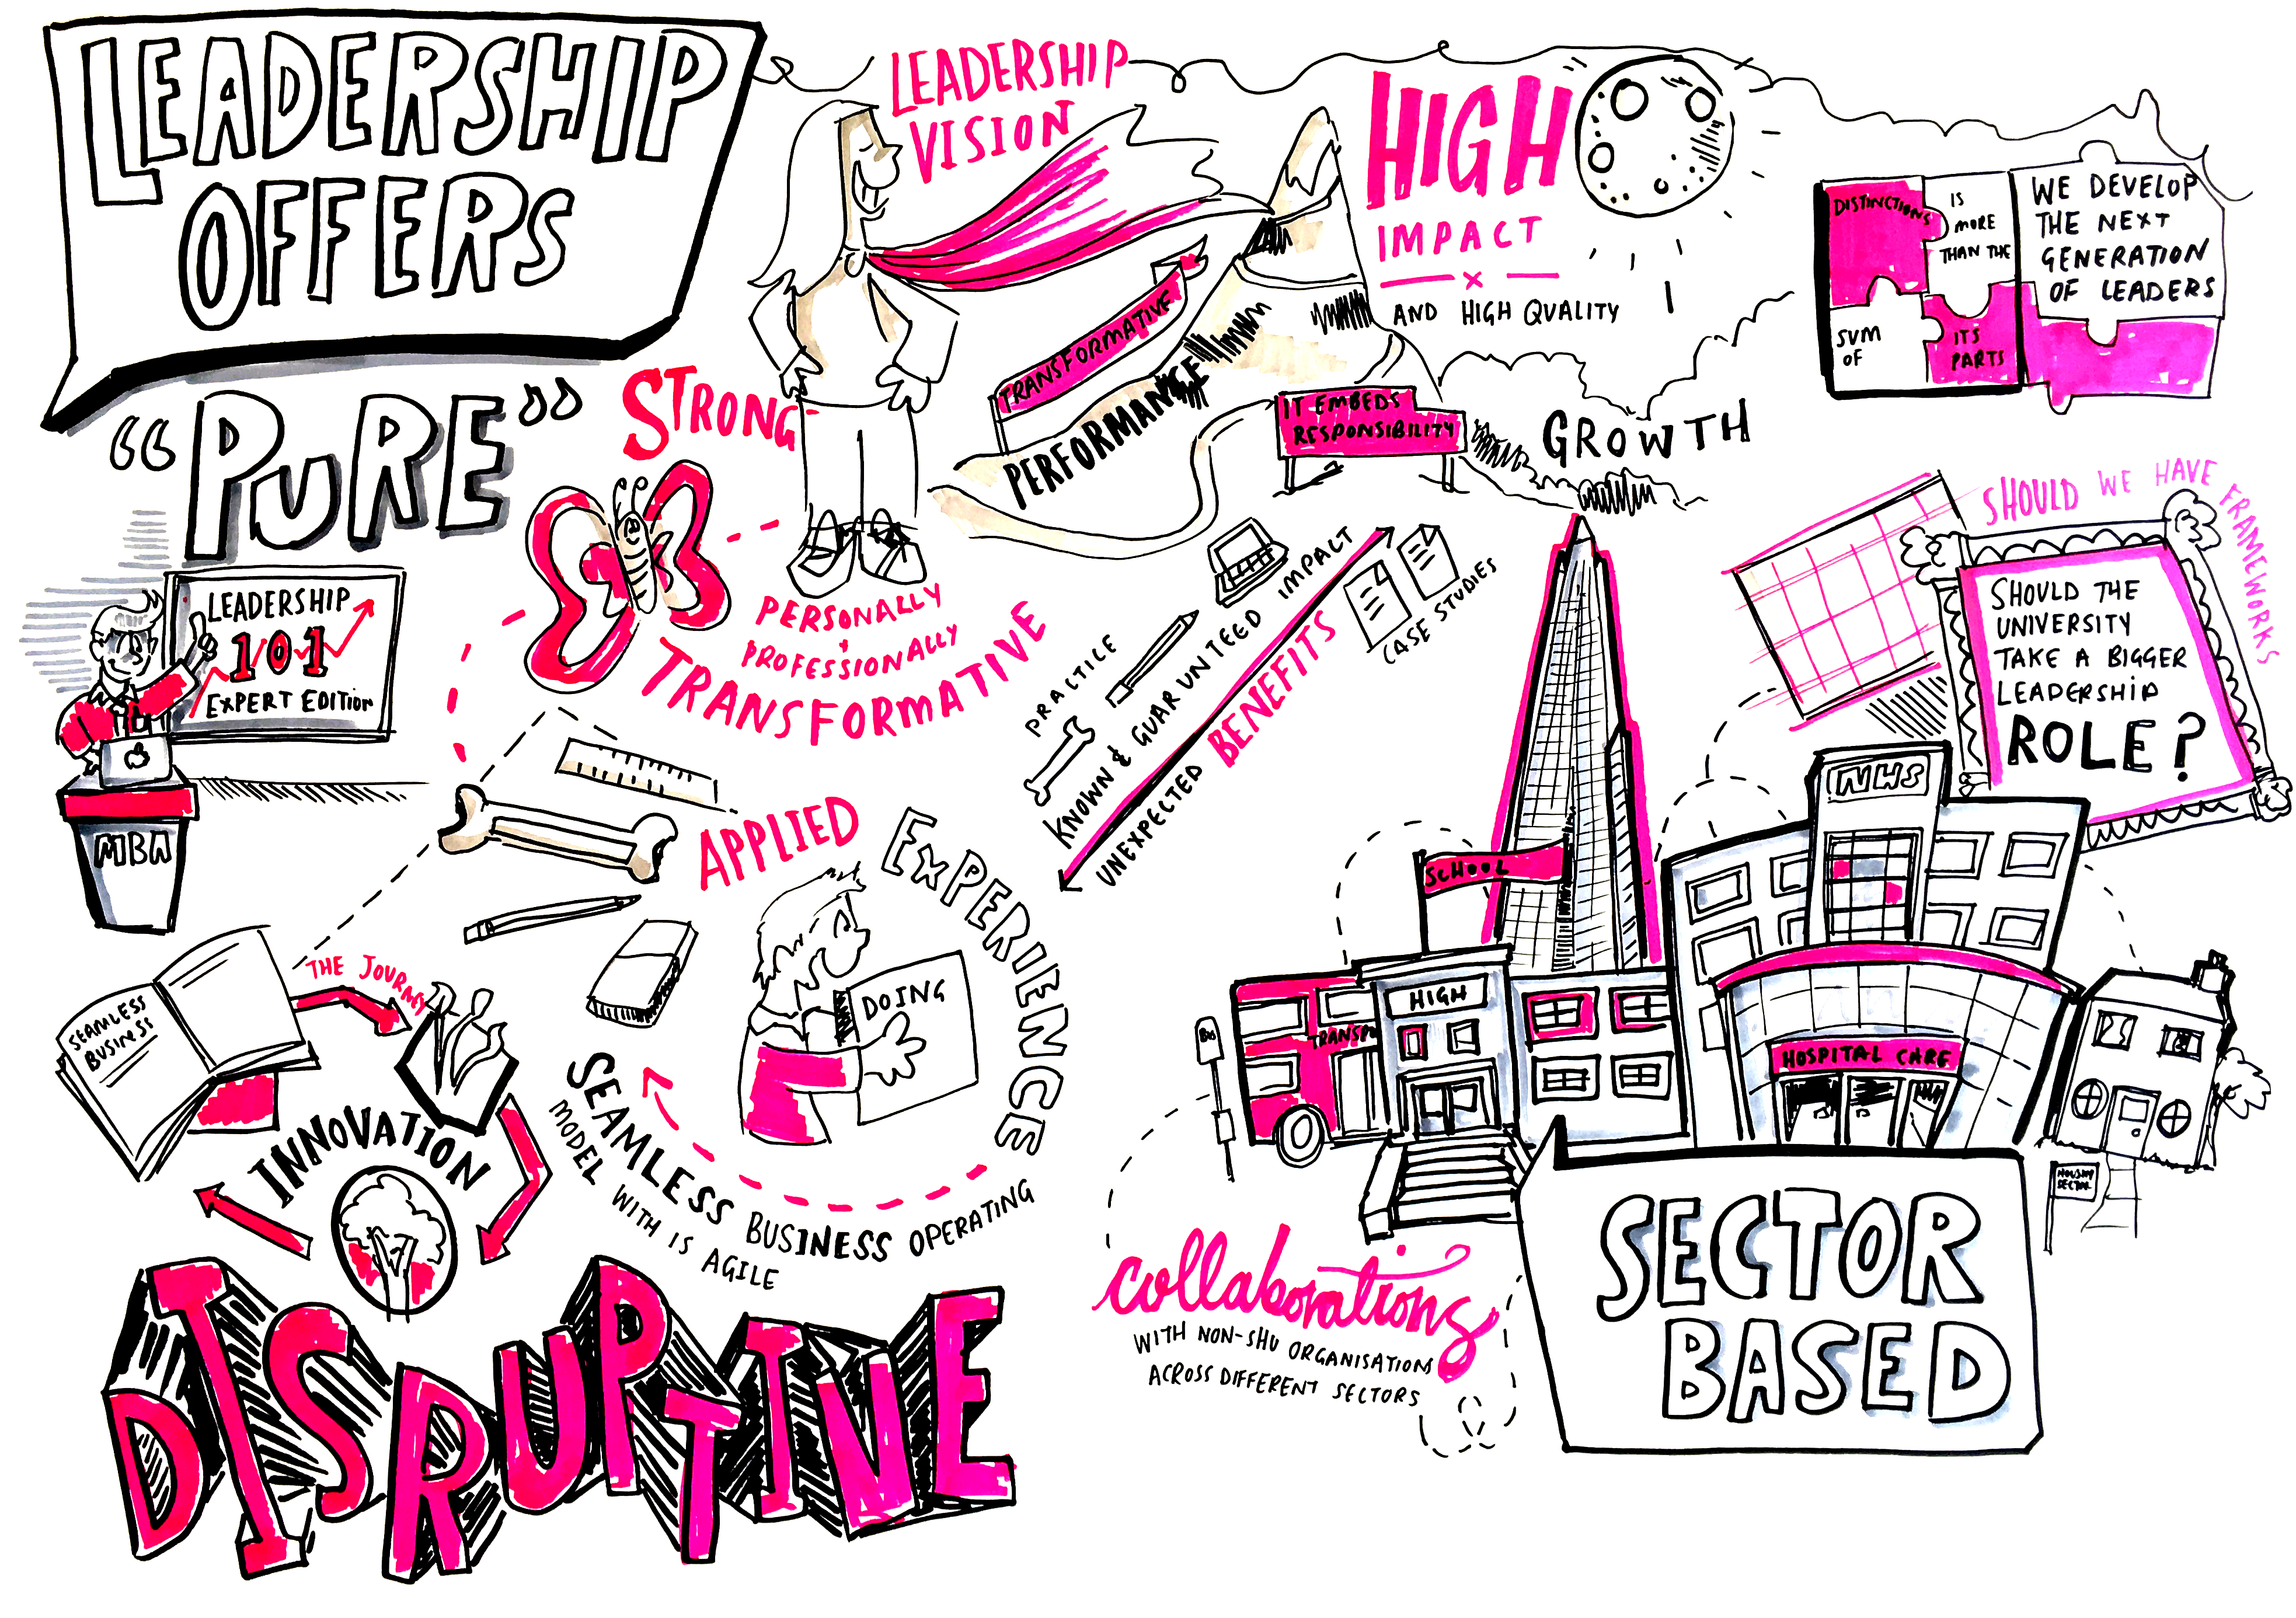 LEADERSHIP
OFFERS
"PURE"
LEADERSHIP
101
EXPERT EDITION
MBA
LEADERSHIP
VISION
STRONG
PERSONALLY
+
PROFESSIONALLY
TRANSFORMATIVE
TRANSFORMATIVE
PERFORMANCE
HIGH
IMPACT
x
AND HIGH QUALITY
IT EMBEDS
RESPONSIBILITY
GROWTH
DISTINCTIONS
IS
MORE
THAN THE
SUM
OF
ITS
PARTS
WE DEVELOP
THE NEXT
GENERATION
OF LEADERS
SHOULD WE HAVE FRAMEWORKS
SHOULD THE
UNIVERSITY
TAKE A BIGGER
LEADERSHIP
ROLE?
PRACTICE
KNOWN & GUARUNTEED IMPACT
UNEXPECTED BENEFITS
CASE STUDIES
APPLIED
EXPERIENCE
DOING
SEAMLESS BUSINESS OPERATING
MODEL WITH IS AGILE
SEAMLESS
BUSINESS
THE JOURNEY
INNOVATION
DISRUPTIVE
SCHOOL
HIGH
BUS
TRANSPO
NHS
HOSPITAL CARE
HOUSING
SECTOR
Collaborations
WITH NON-SHU ORGANISATIONS
ACROSS DIFFERENT SECTORS
SECTOR
BASED